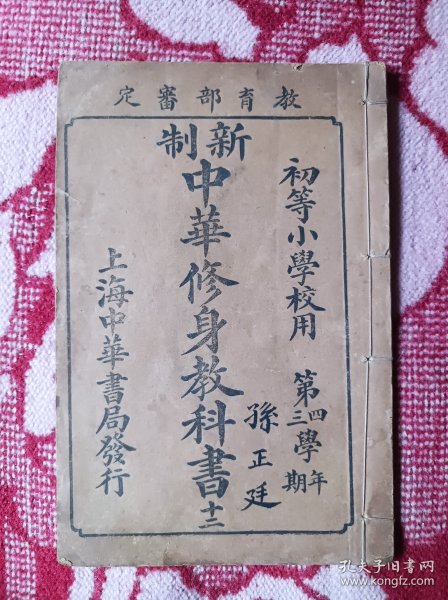 教育部審定
初等小學校用 第四學年
第三學期
新制
中華修身教科書十二
孫正廷
上海中華書局發行
孔夫子旧书网
www.kongfz.com